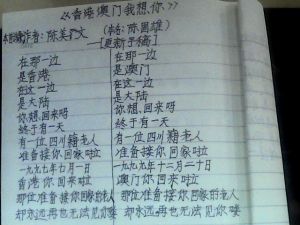 《香港澳门我想你》
本歌词作者:陈美广文 (本名:陈国雄)
[更新手稿]
在那一边 在那一边
是香港 是澳门
在这一边 在这一边
是大陆 是大陆
你想回来呀 你想回来呀
终于有一天 终于有一天
有一位四川籍老人 有一位四川籍老人
准备接你回家啦 准备接你回家啦
一九九七年七月一日 一九九九年十二月二十日
香港你回来啦 澳门你回来啦
那位准备接你回家的老人 那位准备接你回家的老人
却永远再也无法见你喽 却永远再也无法见你喽